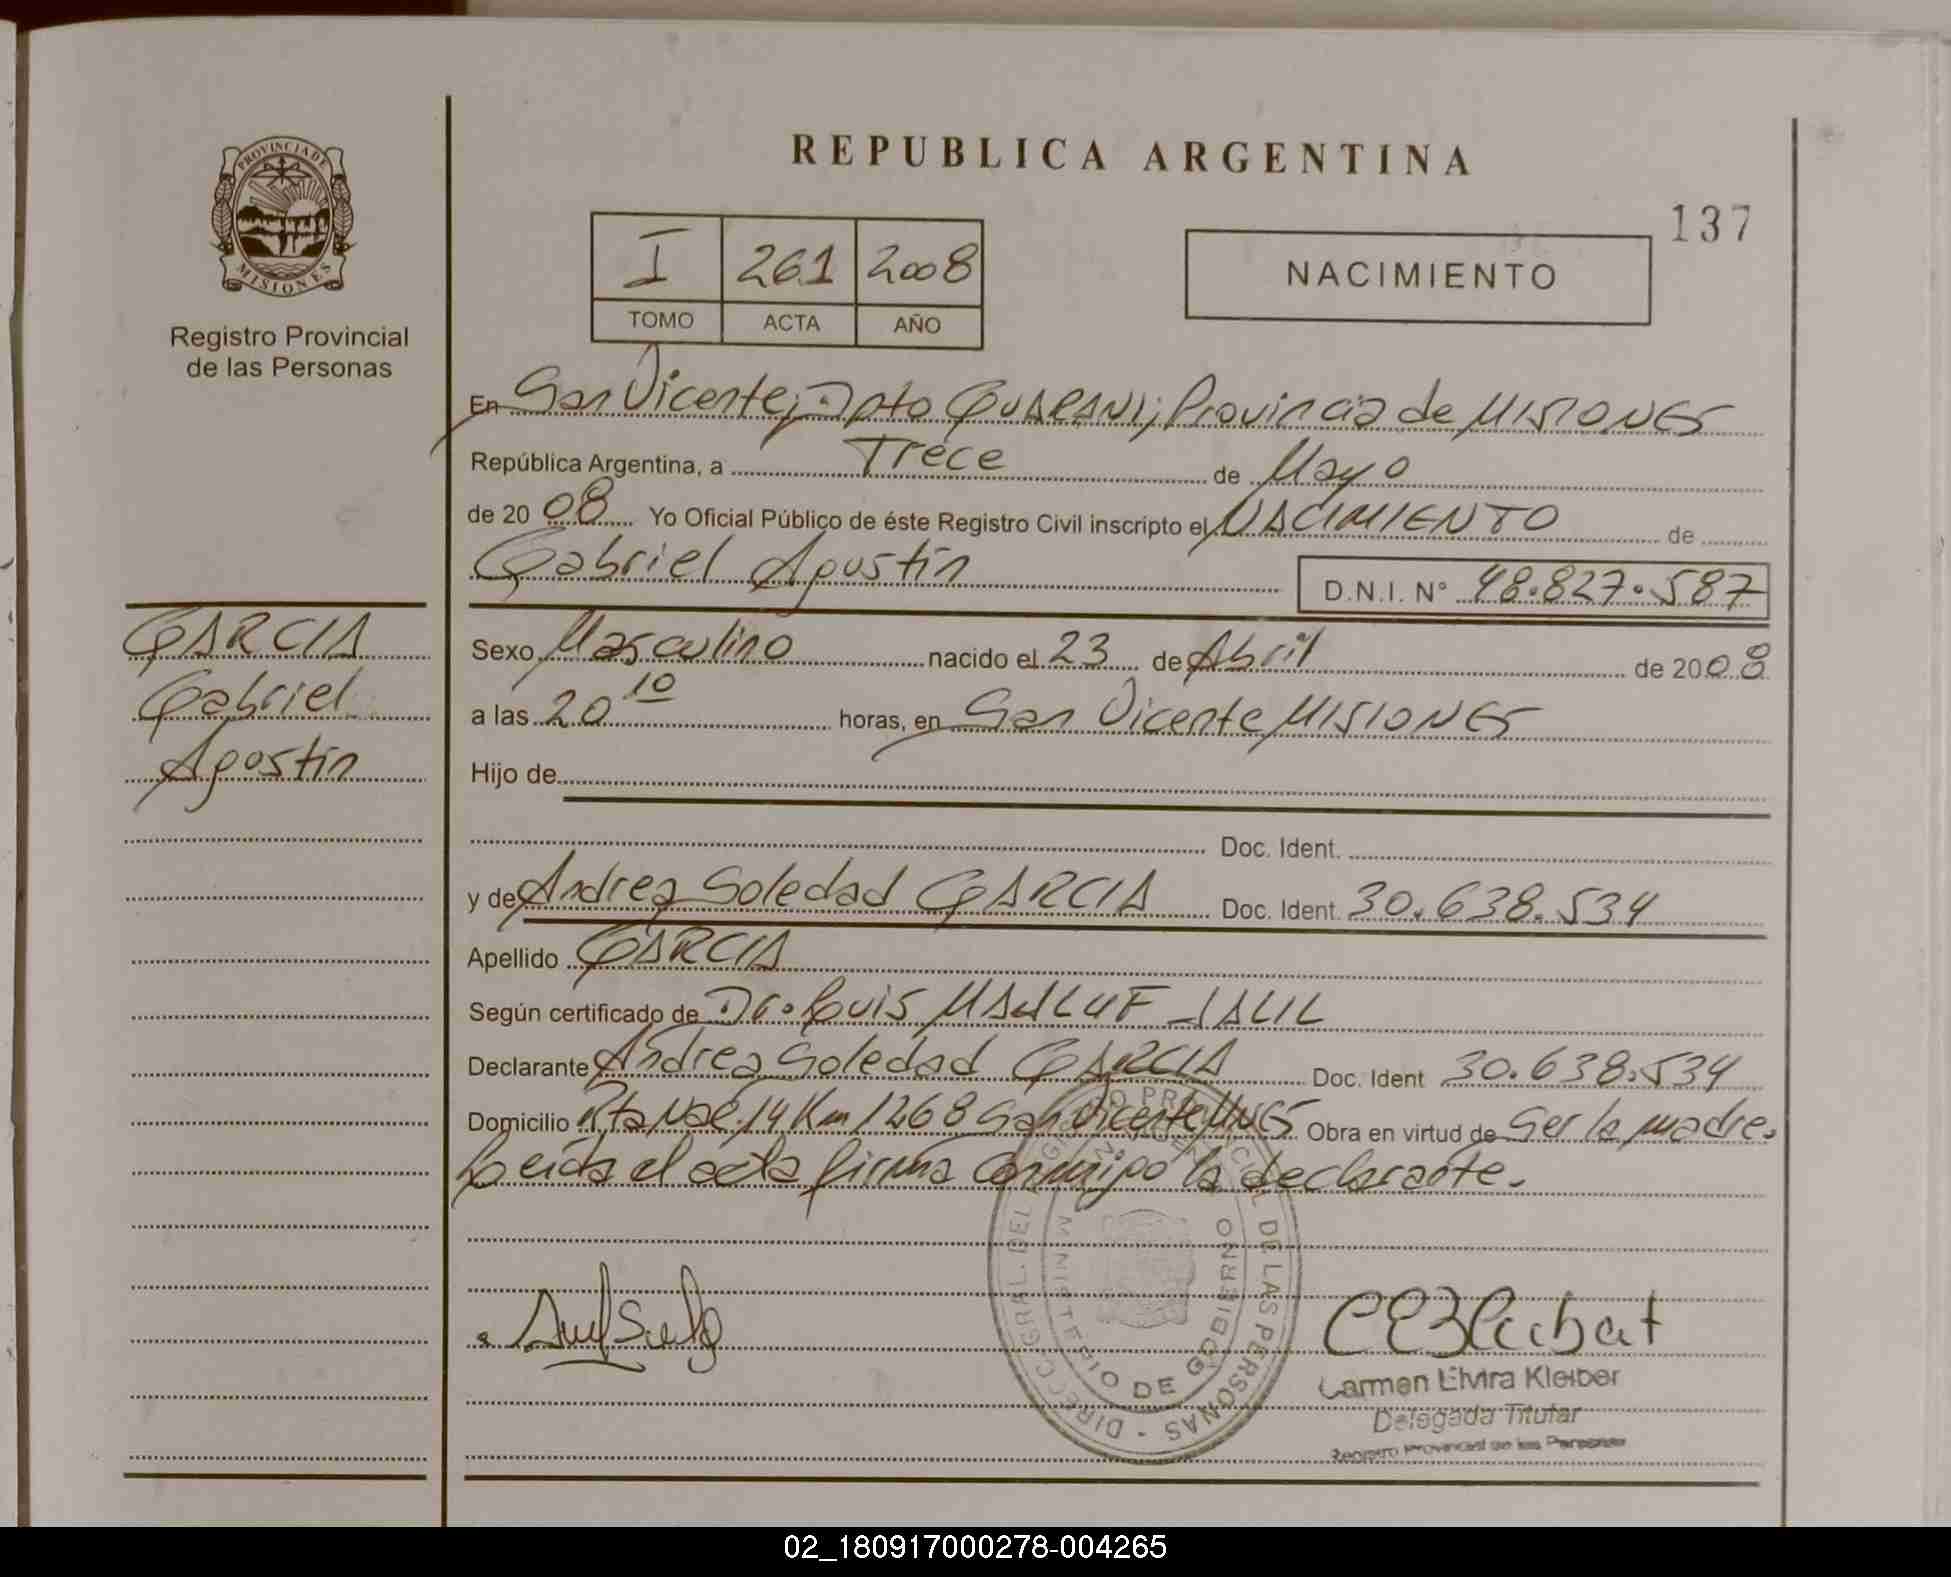 PROVINCIA DE
MISIONES
Registro Provincial
de las Personas
GARCIA
Gabriel
Agostin
REPUBLICA ARGENTINA
137
I 261 2008
TOMO ACTA AÑO
NACIMIENTO
En San Vicente, Dpto GUARANI, Provincia de MISIONES
República Argentina, a Trece de Mayo
de 2008 Yo Oficial Público de éste Registro Civil inscripto el NACIMIENTO de
Gabriel Agustin D.N.I. N° 48.827.587
Sexo Masculino nacido el 23 de Abril de 2008
a las 20 10 horas, en San Vicente MISIONES
Hijo de
Doc. Ident.
y de Andrea Soledad GARCIA Doc. Ident. 30.638.534
Apellido GARCIA
Según certificado de Dr. Luis JALIL
Declarante Andrea Soledad GARCIA Doc. Ident 30.638.534
Domicilio Rta Nac. 14 Km 1268 San Vicente Mnes Obra en virtud de Ser la madre.
Leida el acta firma conmigo la declarante.
DIRECC. GRAL. DEL REGISTRO PROVINCIAL DE LAS PERSONAS
MINISTERIO DE GOBIERNO
Carmen Elvira Kleiber
Delegada Titular
Registro Provincial de las Personas
02_180917000278-004265